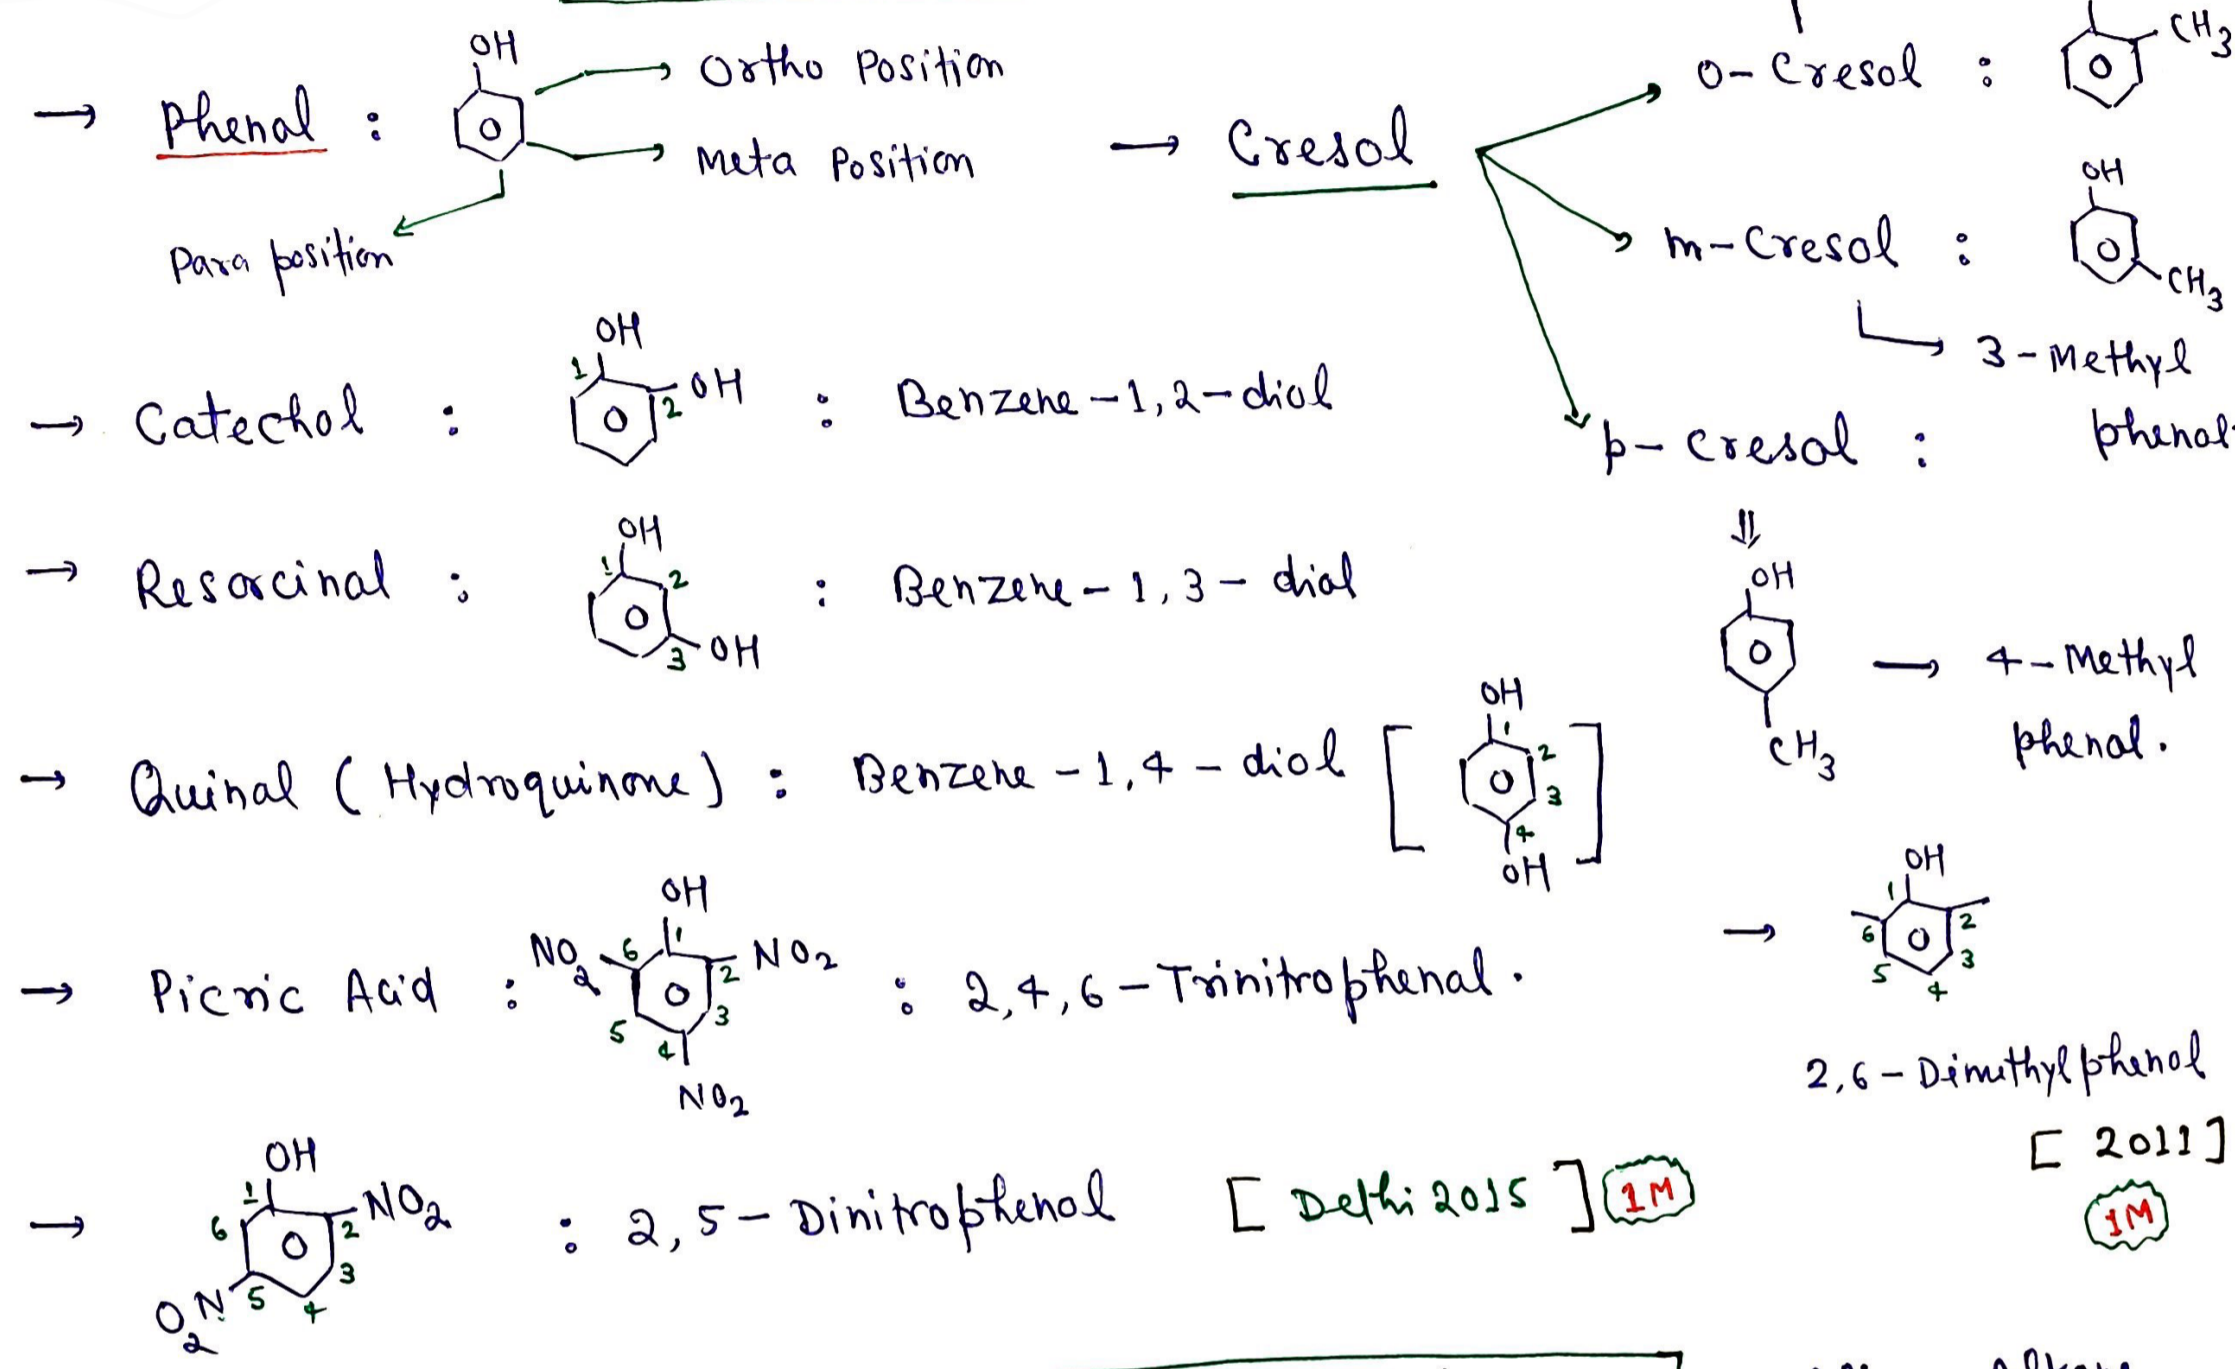 → Phenol : OH Ortho Position
Meta Position
Para position
→ Cresol
o- Cresol : CH3
m-Cresol : OH CH3
3-Methyl
phenol.
p- Cresol :
⇓
OH
CH3
→ 4-Methyl
phenol.
→ Catechol : OH 1 OH 2 : Benzene-1,2-diol
→ Resorcinol : OH 1 2 3 OH : Benzene-1,3-diol
→ Quinol (Hydroquinone) : Benzene-1,4-diol [ OH 1 2 3 4 OH ]
→ Picric Acid : OH NO2 6 1 2 NO2 5 3 4 NO2 : 2,4,6-Trinitrophenol.
→ OH 1 6 2 5 3 4
2,6-Dimethylphenol
[ 2011]
1M
→ OH 1 6 2 NO2 3 O2N 5 4 : 2,5-Dinitrophenol [ Delhi 2015 ] 1M